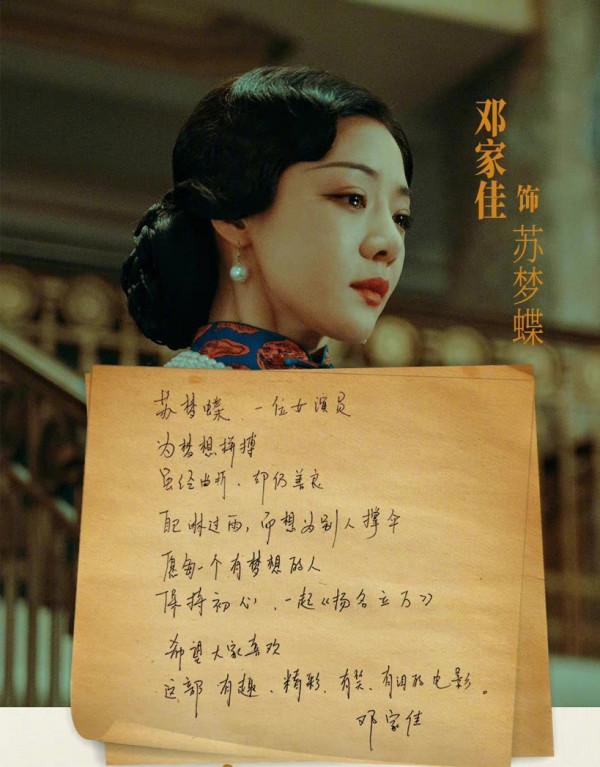 邓家佳
饰
苏梦蝶
苏梦蝶、一位女演员
为梦想拼搏
虽经曲折、却仍善良
自己淋过雨,而想为别人撑伞
愿每一个有梦想的人
保持初心、一起《扬名立万》
希望大家喜欢
这部有趣、精彩、有笑、有泪的电影。
邓家佳